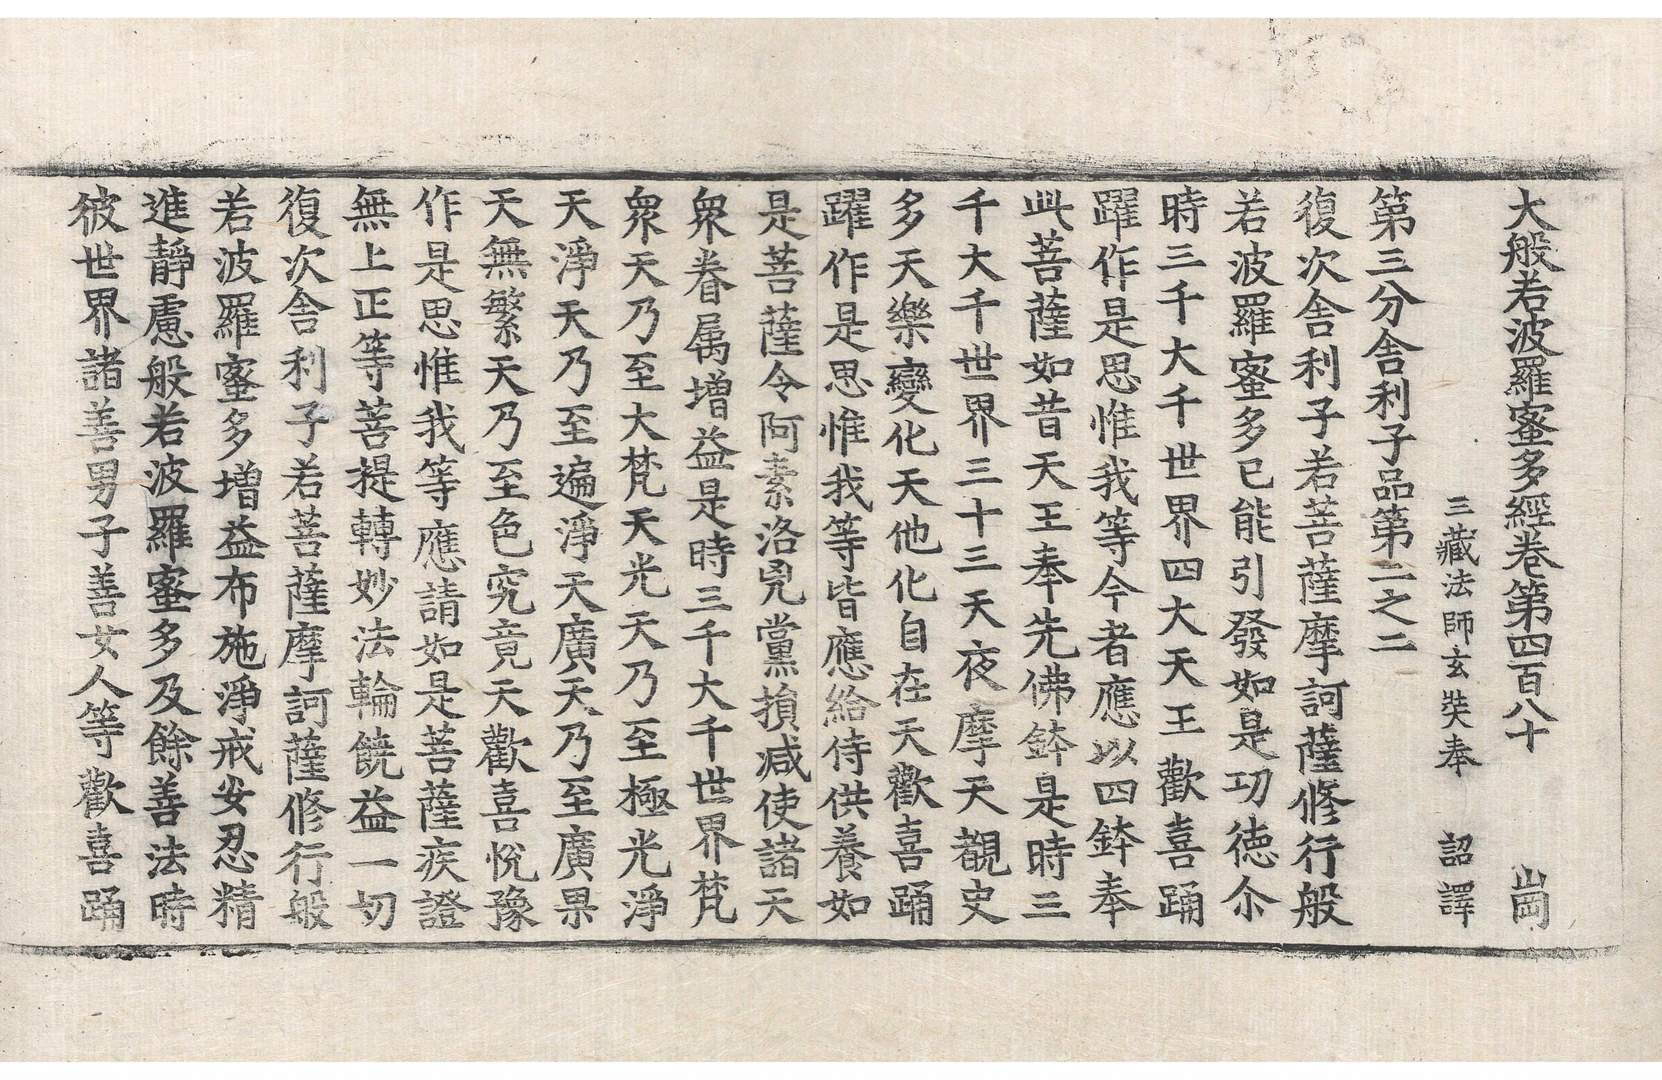 大般若波羅蜜多經卷第四百八十 崗
三藏法師玄奘奉 詔譯
第三分舍利子品第二之二
復次舍利子若菩薩摩訶薩修行般
若波羅蜜多已能引發如是功德尒
時三千大千世界四大天王歡喜踊
躍作是思惟我等今者應以四鉢奉
此菩薩如昔天王奉先佛鉢是時三
千大千世界三十三天夜摩天覩史
多天樂變化天他化自在天歡喜踊
躍作是思惟我等皆應給侍供養如
是菩薩令阿素洛兇黨損減使諸天
衆眷属增益是時三千大千世界梵
衆天乃至大梵天光天乃至極光淨
天淨天乃至遍淨天廣天乃至廣果
天無繁天乃至色究竟天歡喜悅豫
作是思惟我等應請如是菩薩疾證
無上正等菩提轉妙法輪饒益一切
復次舍利子若菩薩摩訶薩修行般
若波羅蜜多增益布施淨戒安忍精
進靜慮般若波羅蜜多及餘善法時
彼世界諸善男子善女人等歡喜踊